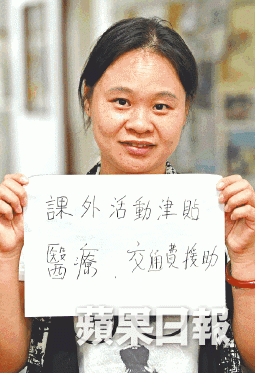 課外活動津貼
醫療、交通費援助
蘋果日報